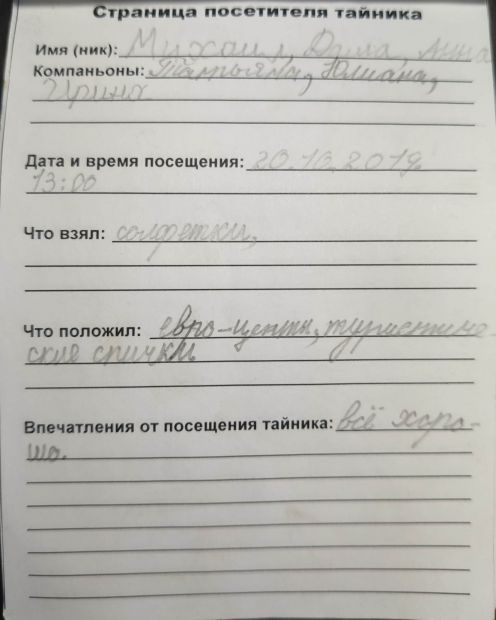 Страница посетителя тайника
Имя (ник): Михаил, Дима, Анна
Компаньоны: Татьяна, Юлиана,
Ирина
Дата и время посещения: 20.10.2019.
13:00
Что взял: салфетки,
Что положил: евро-центы, туристиче-
ские спички
Впечатления от посещения тайника: всё хоро-
шо.